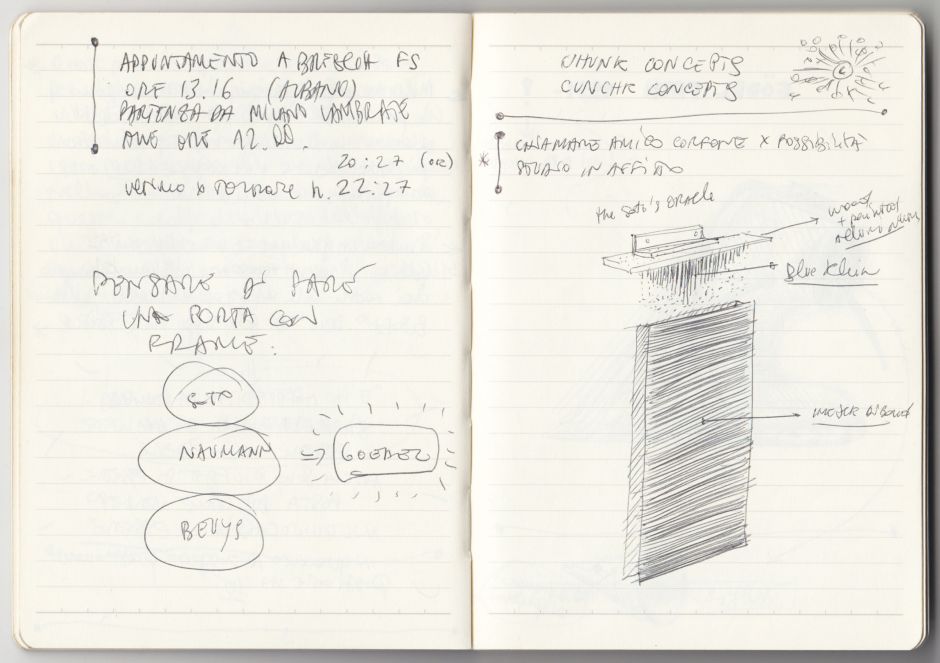 APPUNTAMENTO A BRESCIA FS
ORE 13.16 (ALBANO)
PARTENZA DA MILANO LAMBRATE
ALLE ORE 12.00.
20:27 (ore)
x tornare h. 22:27
PENSARE DI FARE
UNA PORTA CON
FRAME:
SOTO
NAUMANN
GOEBEL
BEUYS
CHUNK CONCEPTS
CUNCHK CONCEPTS
* CHIAMARE AMICO x POSSIBILITÀ
IN AFFIDO
the Soto's ORACLE
wood
+ painted
Blue Klein